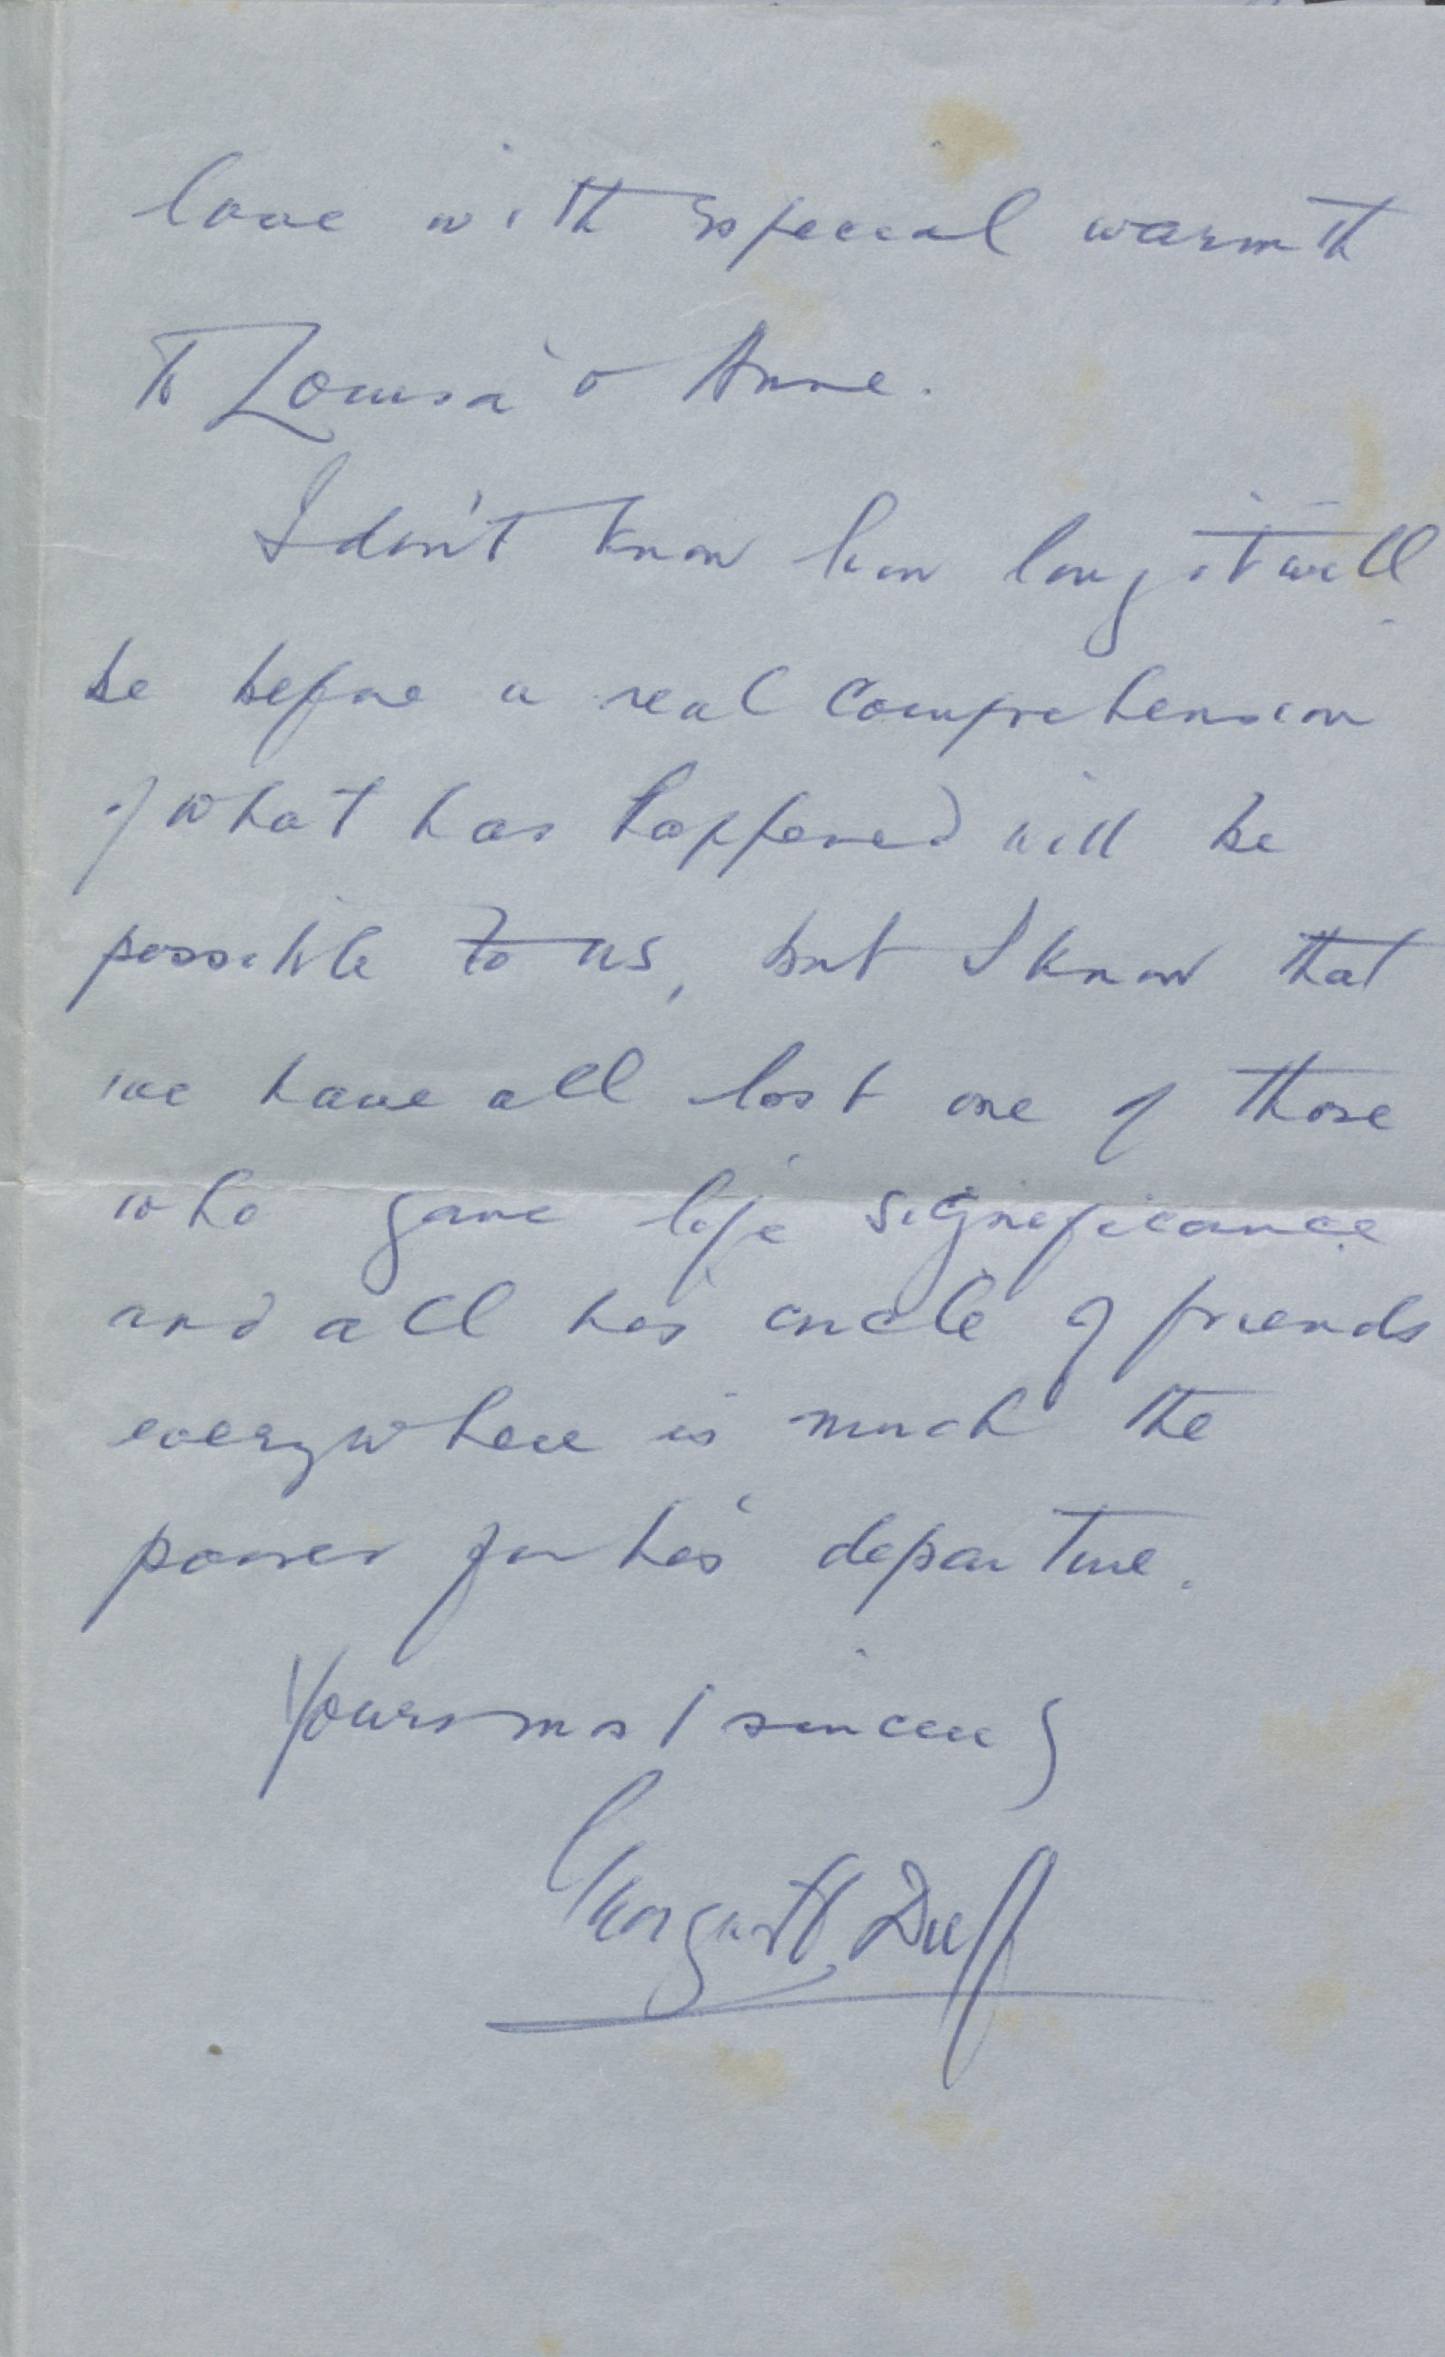 love with especial warmth
to Louisa & Anne.
I don't know how long it will
be before a real comprehension
of what has happened will be
possible to us, but I know that
we have all lost one of those
who gave life significance
and all his circle of friends
everywhere is much the
poorer for his departure.
Yours most sincerely
Margaret Duff